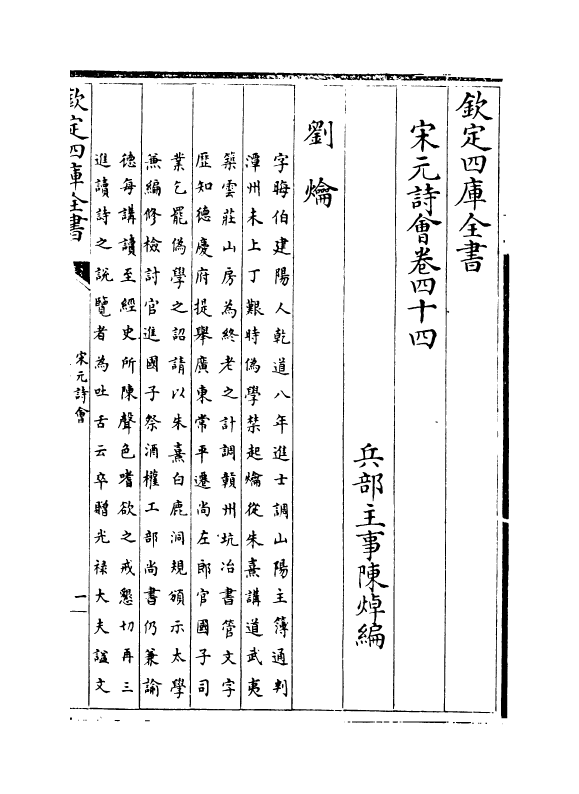 欽定四庫全書
宋元詩會卷四十四
兵部主事陳焯編
劉爚
字晦伯建陽人乾道八年進士調山陽主簿通判
潭州未上丁艱時偽學禁起爚從朱熹講道武夷
築雲莊山房為終老之計調贛州坑冶書管文字
歴知德慶府提舉廣東常平遷尚左郎官國子司
業乞罷偽學之詔請以朱熹白鹿洞規頒示太學
兼編修檢討官進國子祭酒權工部尚書仍兼諭
徳每講讀至經史所陳聲色嗜欲之戒懇切再三
進讀詩之說覽者為吐舌云卒贈光禄大夫諡文
欽定四庫全書
宋元詩會
一